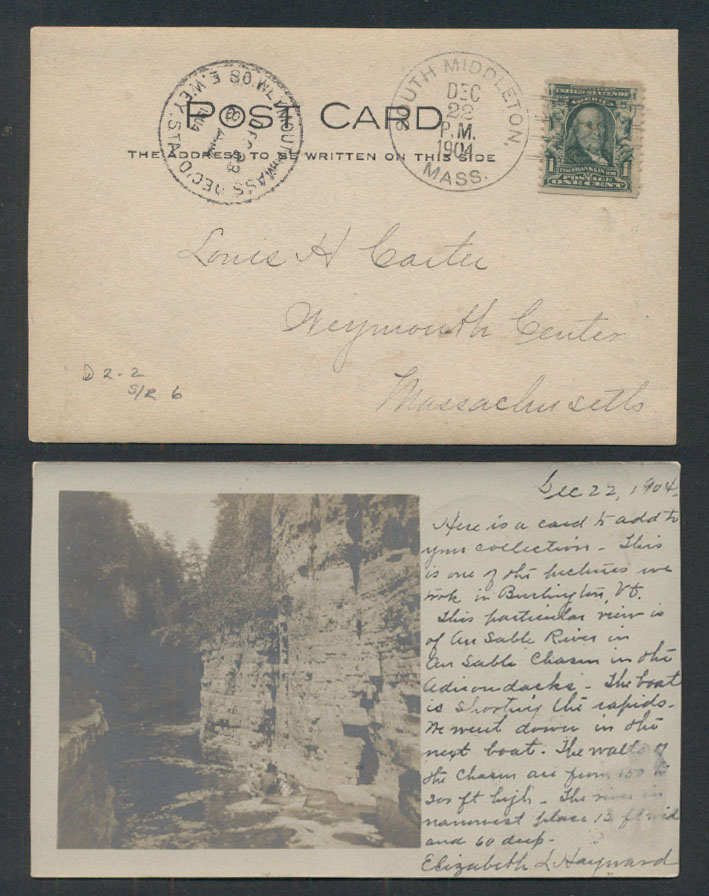 POST CARD
THE ADDRESS TO BE WRITTEN ON THIS SIDE
E. WEY. STA. REC'D
WEYMOUTH MASS.
SOUTH MIDDLETON,
DEC
22
P.M.
1904
MASS.
UNITED STATES OF
AMERICA
1 1
POSTAGE
ONE CENT
Louis H Carter
Weymouth Center
Massachusetts
D 2-2
S/R 6
Dec 22, 1904.
Here is a card to add to
your collection - This
is one of the pictures we
took in Burlington, Vt.
This particular view is
of Au Sable River in
Au Sable Chasm in the
Adirondacks - The boat
is shooting the rapids.
We went down in the
next boat. The walls of
the Chasm are from 150 to
200 ft high - The river in
narrowest place 12 ft wid
and 60 deep -
Elizabeth L Hayward